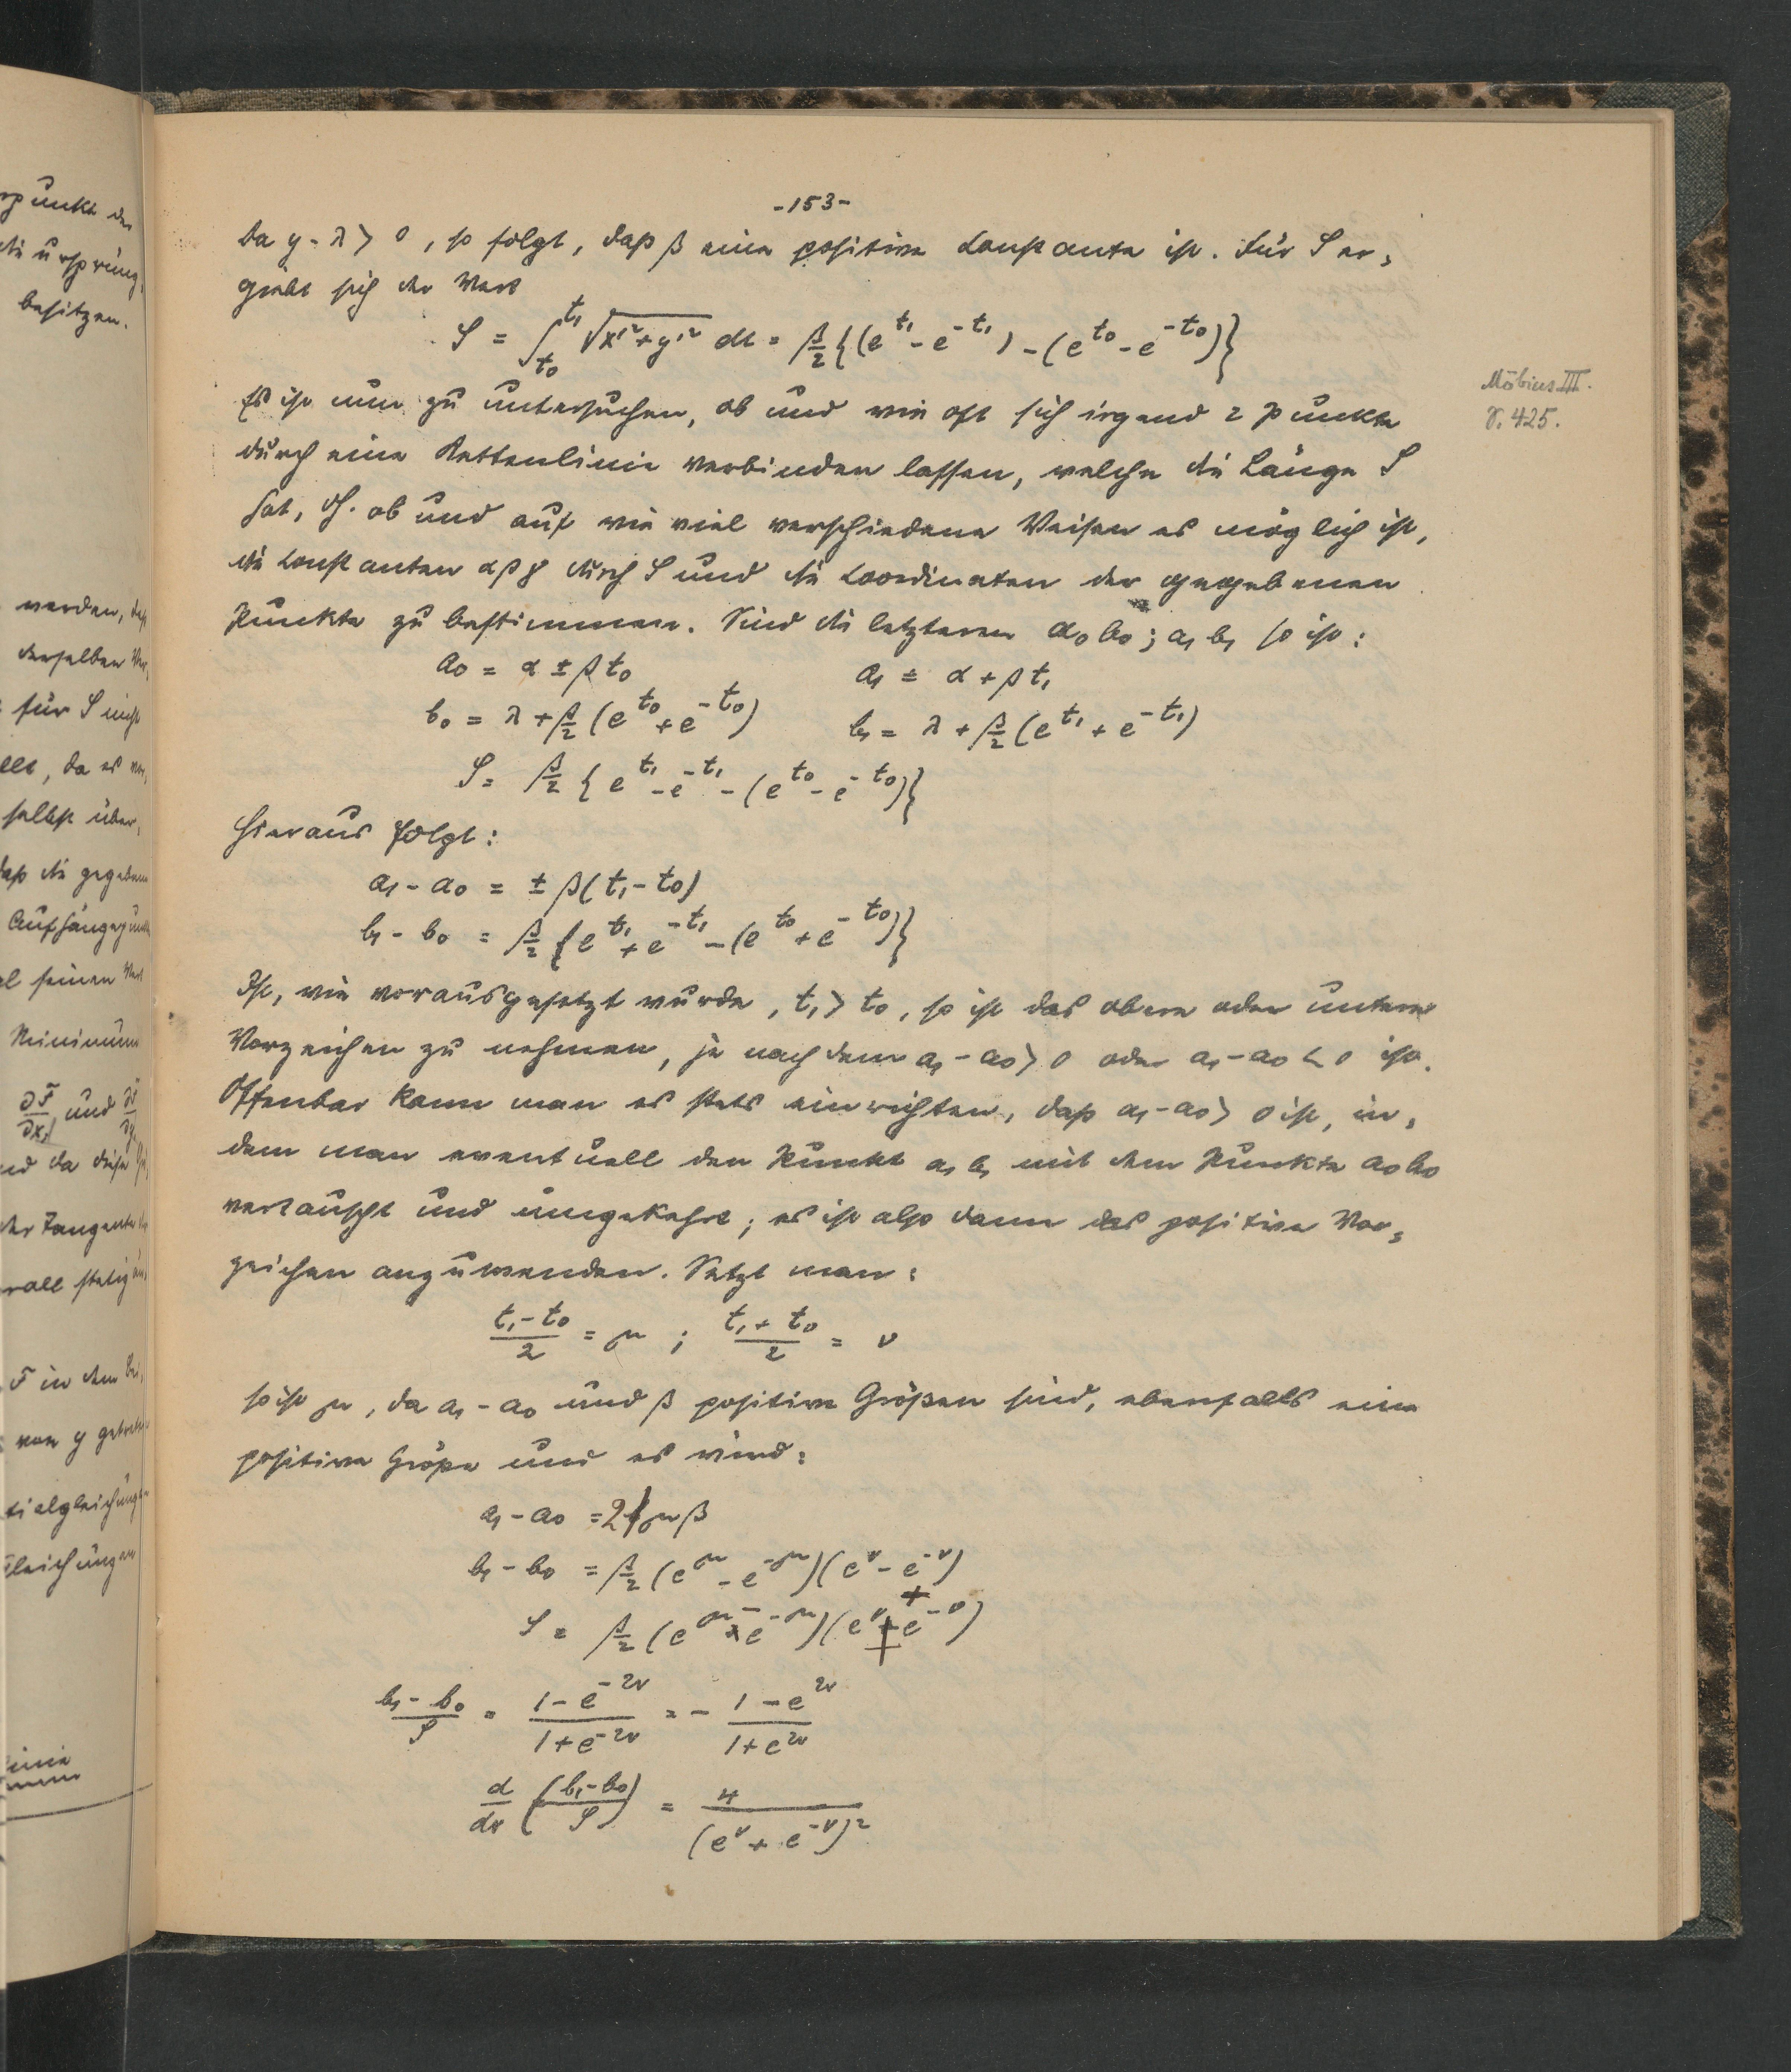 -153-
Da y-λ > 0, so folgt, daß β eine positive Constante ist. Für S er-
giebt sich der Wert
S = ∫_{t₀}^{t₁} √(x'²+y'²) dt = β/2 {(e^{t₁} - e^{-t₁}) - (e^{t₀} - e^{-t₀})}
Es ist nun zu untersuchen, ob und wie oft sich irgend 2 Punkte
durch eine Kettenlinie verbinden lassen, welche die Länge S
hat, d.h. ob und auf wie viel verschiedene Weisen es möglich ist,
die Constanten α β λ durch S und die Coordinaten der gegebenen
Punkte zu bestimmen. Sind die letzteren a₀ b₀; a₁ b₁ so ist:
a₀ = α ± β t₀ a₁ = α ± β t₁
b₀ = λ + β/2 (e^{t₀} + e^{-t₀}) b₁ = λ + β/2 (e^{t₁} + e^{-t₁})
S = β/2 {e^{t₁} - e^{-t₁} - (e^{t₀} - e^{-t₀})}
Hieraus folgt:
a₁ - a₀ = ± β(t₁ - t₀)
b₁ - b₀ = β/2 {e^{t₁} + e^{-t₁} - (e^{t₀} + e^{-t₀})}
Ist, wie vorausgesetzt wurde, t₁ > t₀, so ist das obere oder untere
Vorzeichen zu nehmen, je nachdem a₁ - a₀ > 0 oder a₁ - a₀ < 0 ist.
Offenbar kann man es stets einrichten, daß a₁ - a₀ > 0 ist, in-
dem man eventuell den Punkt a₁ b₁ mit dem Punkte a₀ b₀
vertauscht und umgekehrt; es ist also dann das positive Vor-
zeichen anzuwenden. Setzt man:
(t₁ - t₀)/2 = μ ; (t₁ + t₀)/2 = ν
so ist μ, da a₁ - a₀ und β positive Größen sind, ebenfalls eine
positive Größe und es wird:
a₁ - a₀ = 2 μ β
b₁ - b₀ = β/2 (e^μ - e^{-μ})(e^ν - e^{-ν})
S = β/2 (e^μ - e^{-μ})(e^ν + e^{-ν})
(b₁ - b₀)/S = (1 - e^{-2ν})/(1 + e^{-2ν}) = - (1 - e^{2ν})/(1 + e^{2ν})
d/dν ((b₁ - b₀)/S) = 4/(e^ν + e^{-ν})²
Möbius III.
S. 425.
punkt der
die ursprüng-
besitzen.
werden, daß
derselben
für S nicht
da es
selbst über-
daß die gegebenen
Aufhängepunkte
seinen Wert
Minimum
und
da diese
der Tangente
stetig
F in dem
von y
Gleichungen